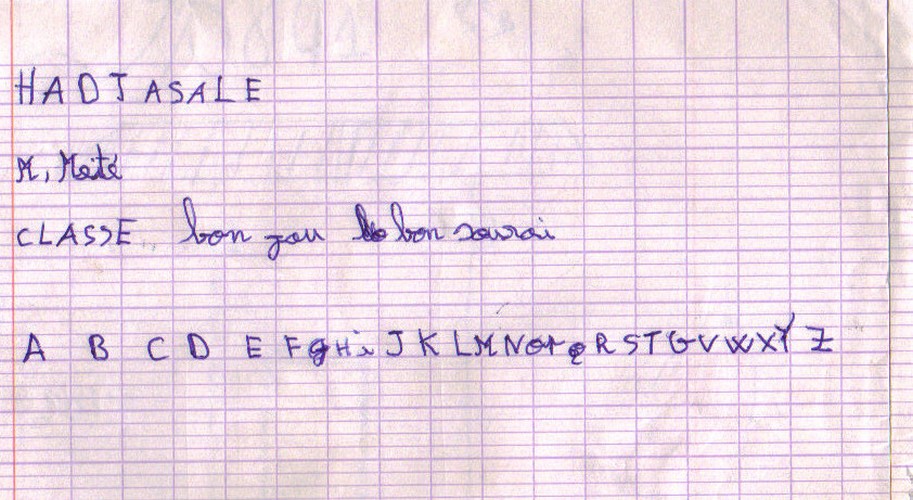 HADJASALE
M, Maité
CLASSE bon jou bon sourai
A B C D E F g H i J K L M N O P Q R S T G V W X Y Z